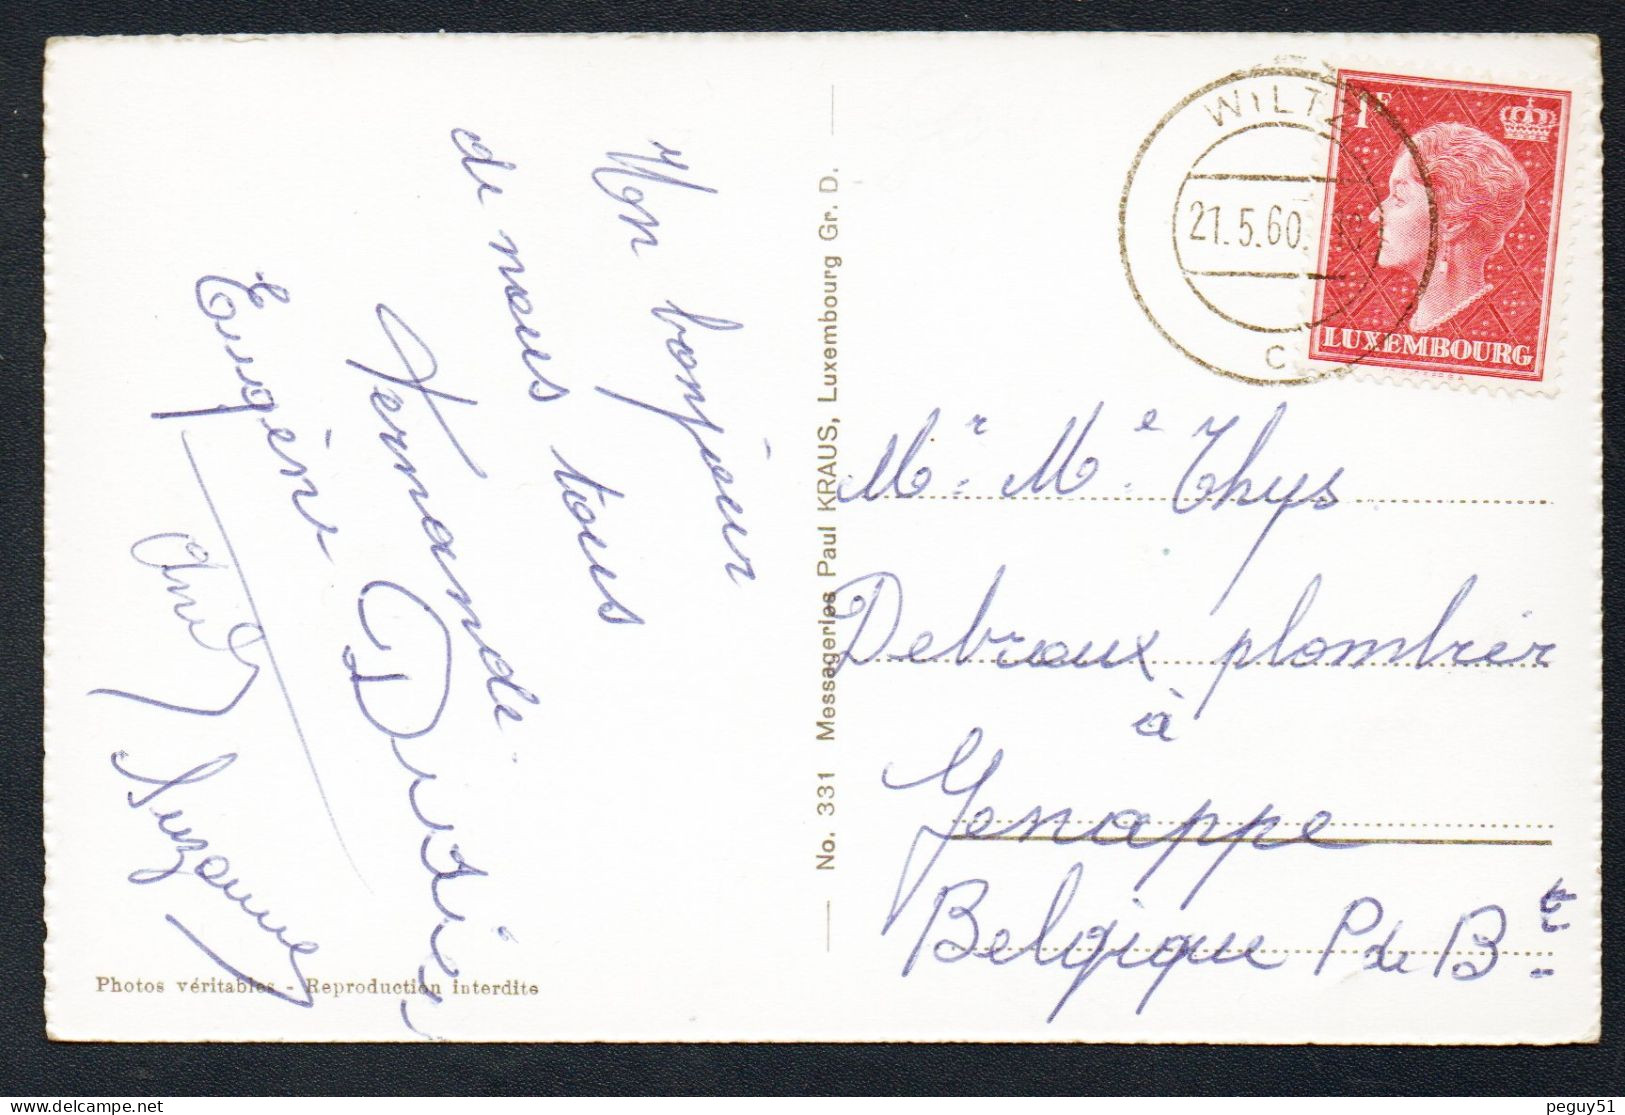 Mon bonjour
de nous tous
Fernande
Eugène
Suzanne
Photos véritables - Reproduction interdite
No. 331 Messageries Paul KRAUS, Luxembourg Gr. D.
WILTZ
21.5.60.
C
1F
LUXEMBOURG
Mr. Me. Thys
Debroux plombier
à
Genappe
Belgique P de Bt
peguy51